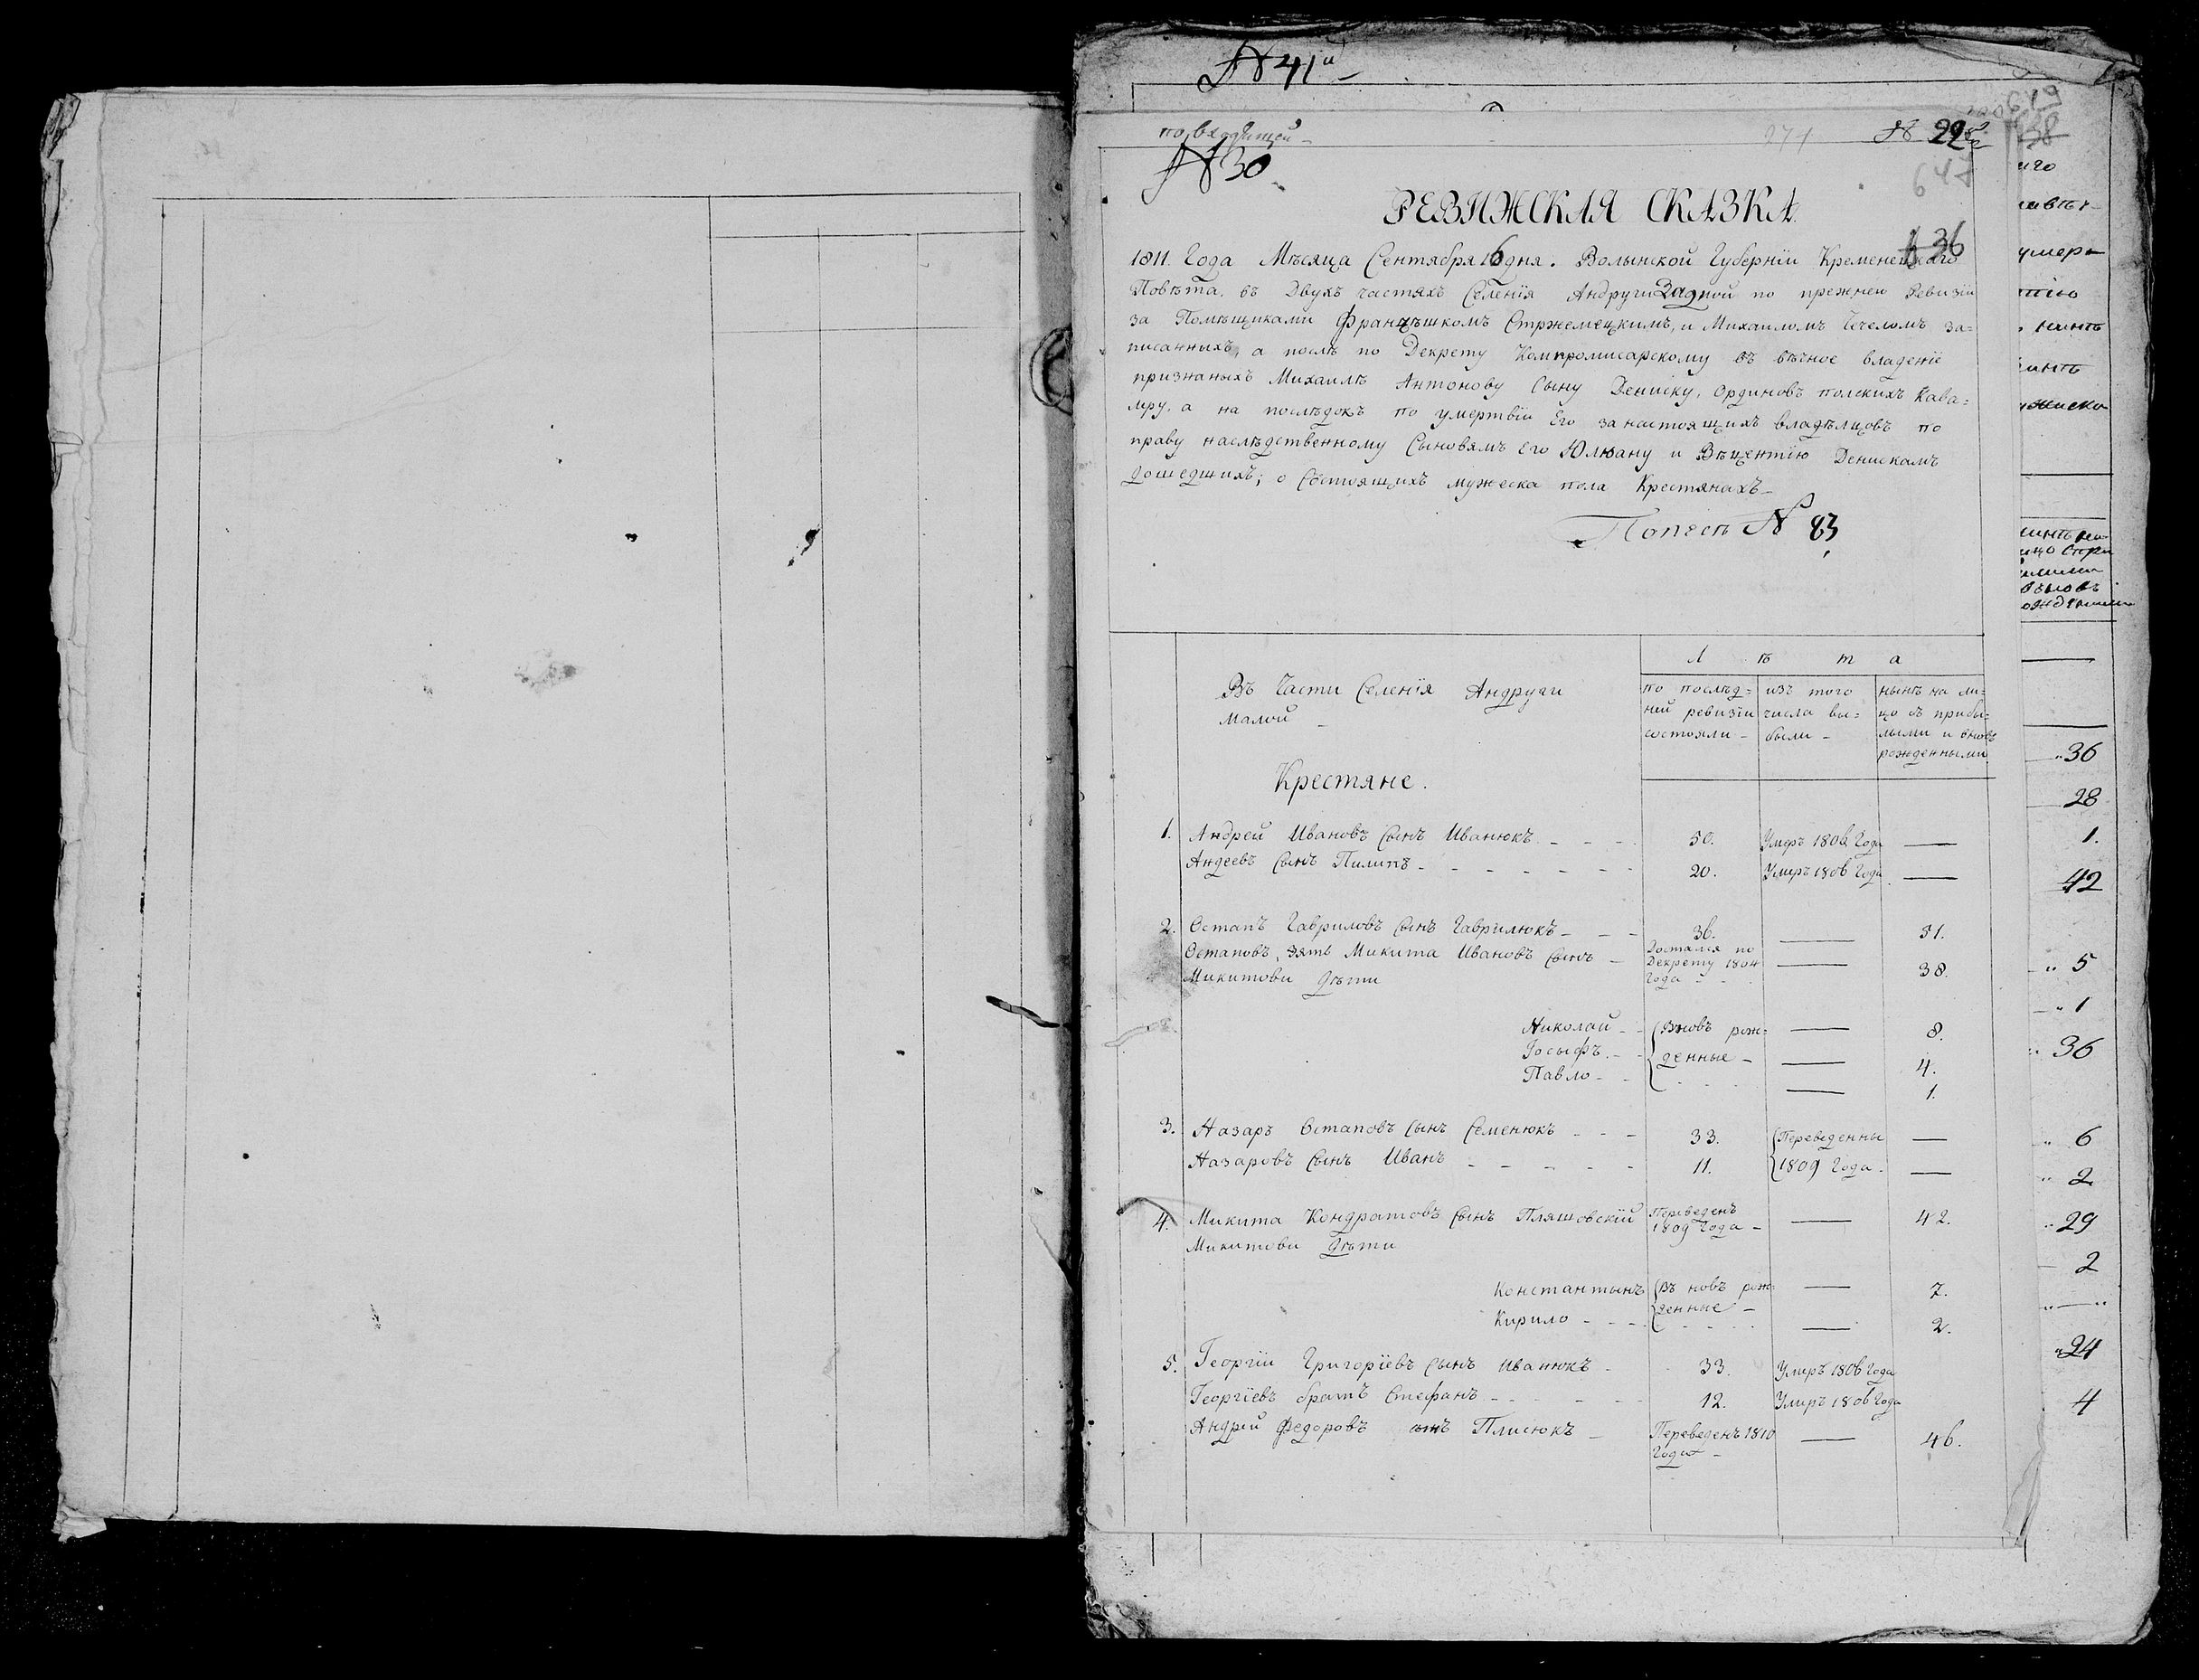 № 41й
по входящей
№ 30
271
№ 22й
647
636
РЕВИЖСКАЯ СКАЗКА
1811. Года Мѣсяца Сентября 16 дня. Волынской Губерніи Кременецкаго
Повѣта, въ Двухъ частяхъ Селенія Андруги Задной по прежнеи Ревизіи
за Помѣщиками Францѣшкомъ Стржемецкимъ, и Михаиломъ за=
писанныхъ, а послѣ по Декрету Компромисарскому въ вѣчное владеніе
признаныхъ Михаилѣ Антонову Сыну Дениску, Ординовъ полскихъ Кава=
леру, а на послѣдокъ по умертвіи Его за настоящихъ владѣлцовъ по
праву наслѣдственному Сыновямъ Его Юлѣану и Вѣцентію Денискамъ
дошедшихъ; о Состоящихъ мужеска пола Крестянахъ
№ 83
Въ Части Селенія Андруги
Малой
Лѣта
по послѣд=
ней ревизіи
состояли
изъ того
числа вы=
были
нынѣ на ли=
цо съ прибы=
лыми и вновь
рожденными
Крестяне.
1. Андрей Ивановъ Сынъ Иванюкъ 50. Умеръ 1806 Года —
Андеевъ Сынъ Пилипъ 20. Умеръ 1806 Года —
2. Остапъ Гавриловъ Сынъ Гаврилюкъ 36. — 51.
Остаповъ, зять Микита Ивановъ Сынъ Достался по Декрету 1804 Года — 38.
Микитови Дѣти
Николай Вновь рож= — 8.
Іосыфъ денные — 4.
Павло — 1.
3. Назаръ Остаповъ Сынъ Семенюкъ 33. Переведенны —
Назаровъ Сынъ Иванъ 11. 1809 Года —
4. Микита Кондратовъ Сынъ Пляшовскій Переведенъ 1809 Года — 42.
Микитови Дѣти
Константынъ Въ новъ рож — 7.
Кирило денные — 2.
5. Георгіи Григоріевъ Сынъ Иванюкъ 33. Умеръ 1806 Года
Георгіевъ братъ Стефанъ 12. Умеръ 1806 Года
Андрей Федоровъ сынъ Плисюкъ Переведенъ 1810 Года — 46.
36
28
1.
42
5
1
36
6
2
29
2
24
4